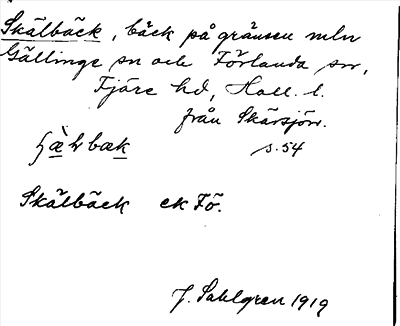 Skälbäck, bäck på gränsen mln
Gällinge sn och Förlanda sn,
Fjäre hd, Hall. l.
från Skärsjön.
s. 54
Skälbäck ek Fö.
J. Sahlgren 1919